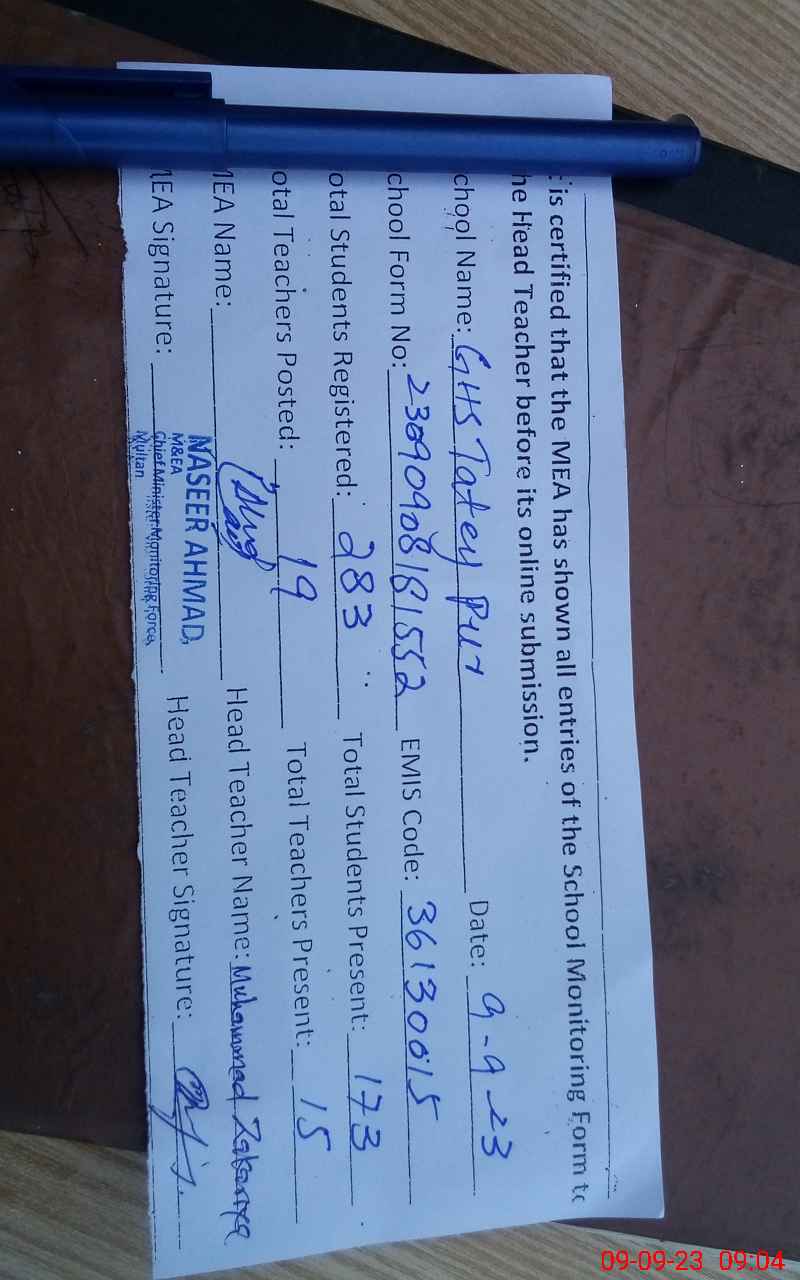 : is certified that the MEA has shown all entries of the School Monitoring Form to
he Head Teacher before its online submission.
chool Name: GHS Tatey Pur Date: 9-9-23
chool Form No: EMIS Code: 36130015
otal Students Registered: 283 Total Students Present: 173
otal Teachers Posted: 19 Total Teachers Present: 15
MEA Name: Head Teacher Name: Muhammad Zakariya
MEA Signature: Head Teacher Signature:
NASEER AHMAD,
M&EA
Chief Minister Monitoring Force,
Multan
09-09-23 09:04